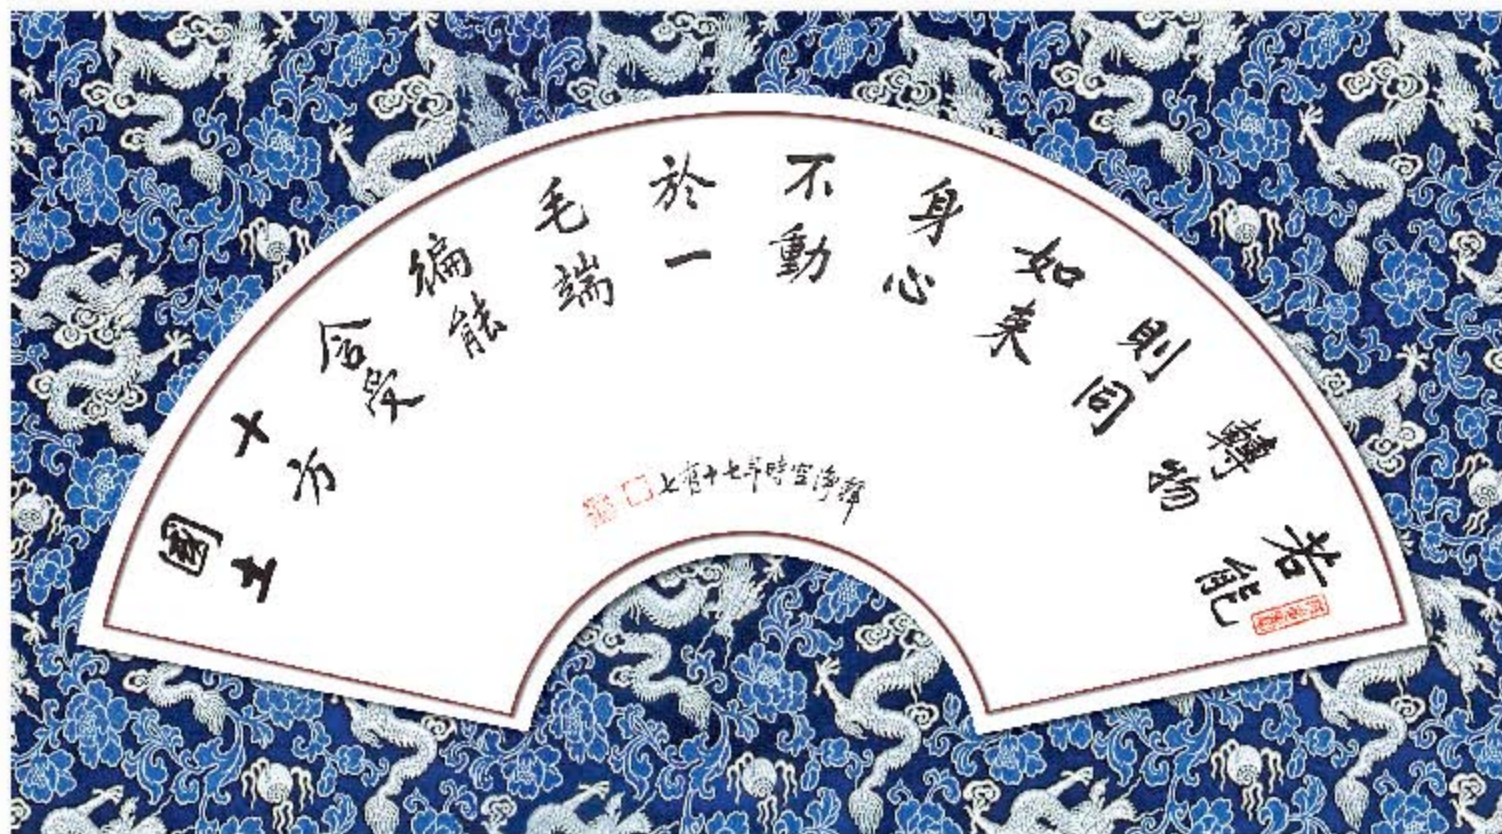 若能
轉物
則同
如来
身心
不動
於一
毛端
徧能
含受
十方
國土
釋淨空時年七十有七